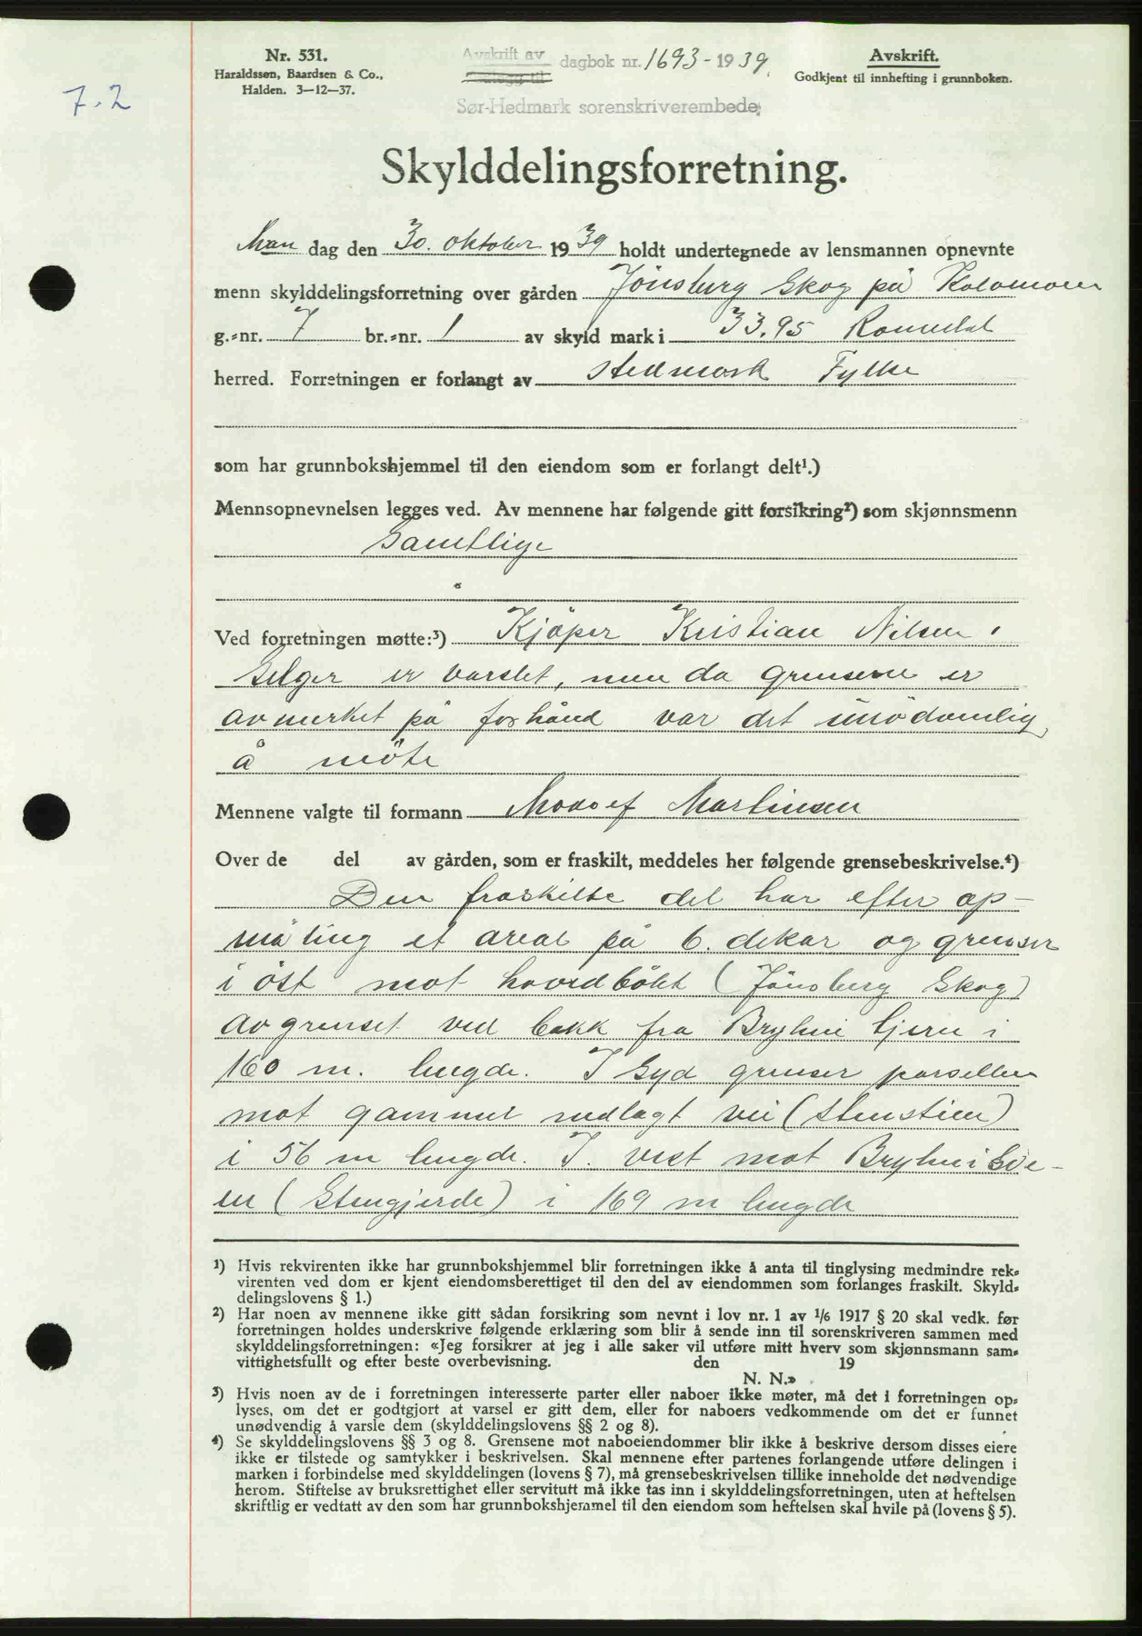 Nr. 531.
Haraldssøn, Baardsen & Co.,
Halden. 3—12—37.
7.2
Avskrift av
dagbok nr. 1693 - 1939.
Sør-Hedmark sorenskriverembede;
Avskrift.
Godkjent til innhefting i grunnboken.
Skylddelingsforretning.
Man dag den 30. oktober 1939 holdt undertegnede av lensmannen opnevnte
menn skylddelingsforretning over gården Jönsberg Skog på
g.-nr. 7 br.-nr. 1 av skyld mark i 33.95 Romedal
herred. Forretningen er forlangt av Hedmark Fylke
som har grunnbokshjemmel til den eiendom som er forlangt delt¹.)
Mennsopnevnelsen legges ved. Av mennene har følgende gitt forsikring²) som skjønnsmenn
Samtlige
Ved forretningen møtte:³) Kjöper Kristian Nilsen.
Selger er varslet, men da grensene er
avmerket på forhånd var det unödvendig
å möte
Mennene valgte til formann Martinsen
Over de del av gården, som er fraskilt, meddeles her følgende grensebeskrivelse.⁴)
Den fraskilte del har efter op-
måling et areal på 6. dekar og grenser
i öst mot hovedbölet (Jönsberg Skog)
avgrenset ved bekk fra Bryhni tjern i
160 m. lengde. I Syd grenser parsellen
mot gammel nedlagt vei (Stenstien)
i 56 m lengde. I. vest mot Bryhni
(Stengjerde) i 169 m lengde
¹) Hvis rekvirenten ikke har grunnbokshjemmel blir forretningen ikke å anta til tinglysing medmindre rek-
virenten ved dom er kjent eiendomsberettiget til den del av eiendommen som forlanges fraskilt. Skyld-
delingslovens § 1.)
²) Har noen av mennene ikke gitt sådan forsikring som nevnt i lov nr. 1 av 1/6 1917 § 20 skal vedk. før
forretningen holdes underskrive følgende erklæring som blir å sende inn til sorenskriveren sammen med
skylddelingsforretningen: «Jeg forsikrer at jeg i alle saker vil utføre mitt hverv som skjønnsmann sam-
vittighetsfullt og efter beste overbevisning. den 19
N. N.»
³) Hvis noen av de i forretningen interesserte parter eller naboer ikke møter, må det i forretningen op-
lyses, om det er godtgjort at varsel er gitt dem, eller for naboers vedkommende om det er funnet
unødvendig å varsle dem (skylddelingslovens §§ 2 og 8).
⁴) Se skylddelingslovens §§ 3 og 8. Grensene mot naboeiendommer blir ikke å beskrive dersom disses eiere
ikke er tilstede og samtykker i beskrivelsen. Skal mennene efter partenes forlangende utføre delingen i
marken i forbindelse med skylddelingen (lovens § 7), må grensebeskrivelsen tillike inneholde det nødvendige
herom. Stiftelse av bruksrettighet eller servitutt må ikke tas inn i skylddelingsforretningen, uten at heftelsen
skriftlig er vedtatt av den som har grunnbokshjemmel til den eiendom som heftelsen skal hvile på (lovens § 5).